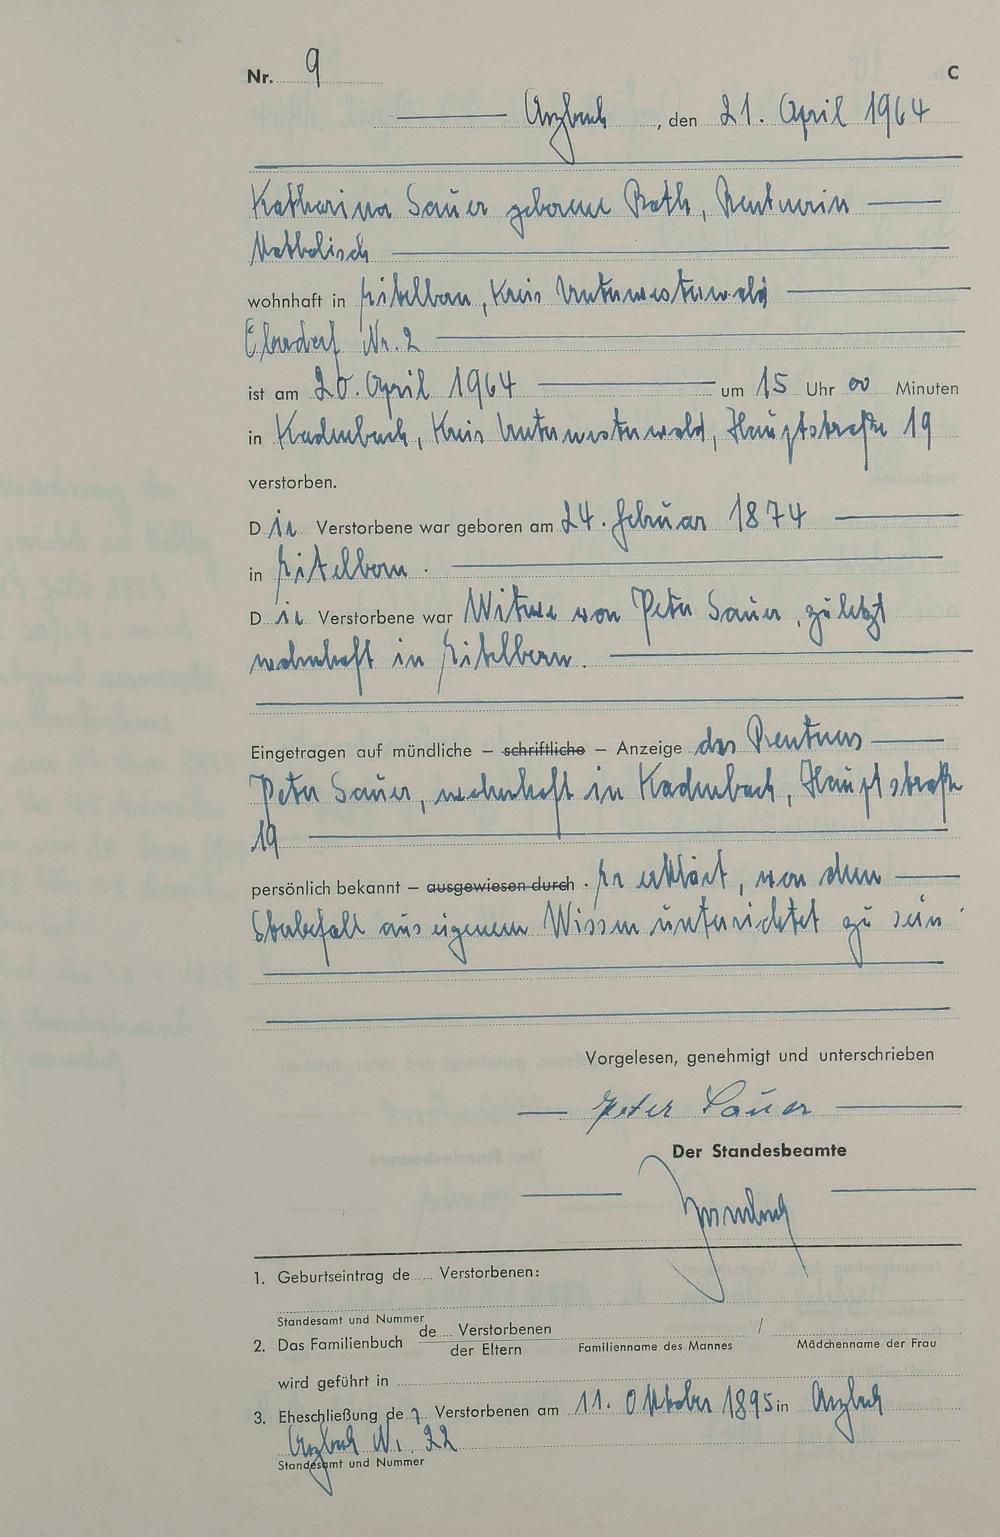 Nr. 9 C
Arzbach, den 21. April 1964
Katharina Sauer geborene Roth, Rentnerin
Katholisch
wohnhaft in Eitelborn, Kreis Unterwesterwald
Oberdorf Nr. 2
ist am 20. April 1964 um 15 Uhr 00 Minuten
in Kadenbach, Kreis Unterwesterwald, Hauptstraße 19
verstorben.
Die Verstorbene war geboren am 24. Februar 1874
in Eitelborn.
Die Verstorbene war Witwe von Peter Sauer, zuletzt
wohnhaft in Eitelborn.
Eingetragen auf mündliche – schriftliche – Anzeige des Rentners
Peter Sauer, wohnhaft in Kadenbach, Hauptstraße
19
persönlich bekannt – ausgewiesen durch. Er erklärt, von dem
Sterbefall aus eigenem Wissen unterrichtet zu sein.
Vorgelesen, genehmigt und unterschrieben
Peter Sauer
Der Standesbeamte
1. Geburtseintrag de..... Verstorbenen:
Standesamt und Nummer
2. Das Familienbuch de.... Verstorbenen /
der Eltern Familienname des Mannes Mädchenname der Frau
wird geführt in
3. Eheschließung der Verstorbenen am 11. Oktober 1895 in Arzbach
Arzbach Nr. 22
Standesamt und Nummer